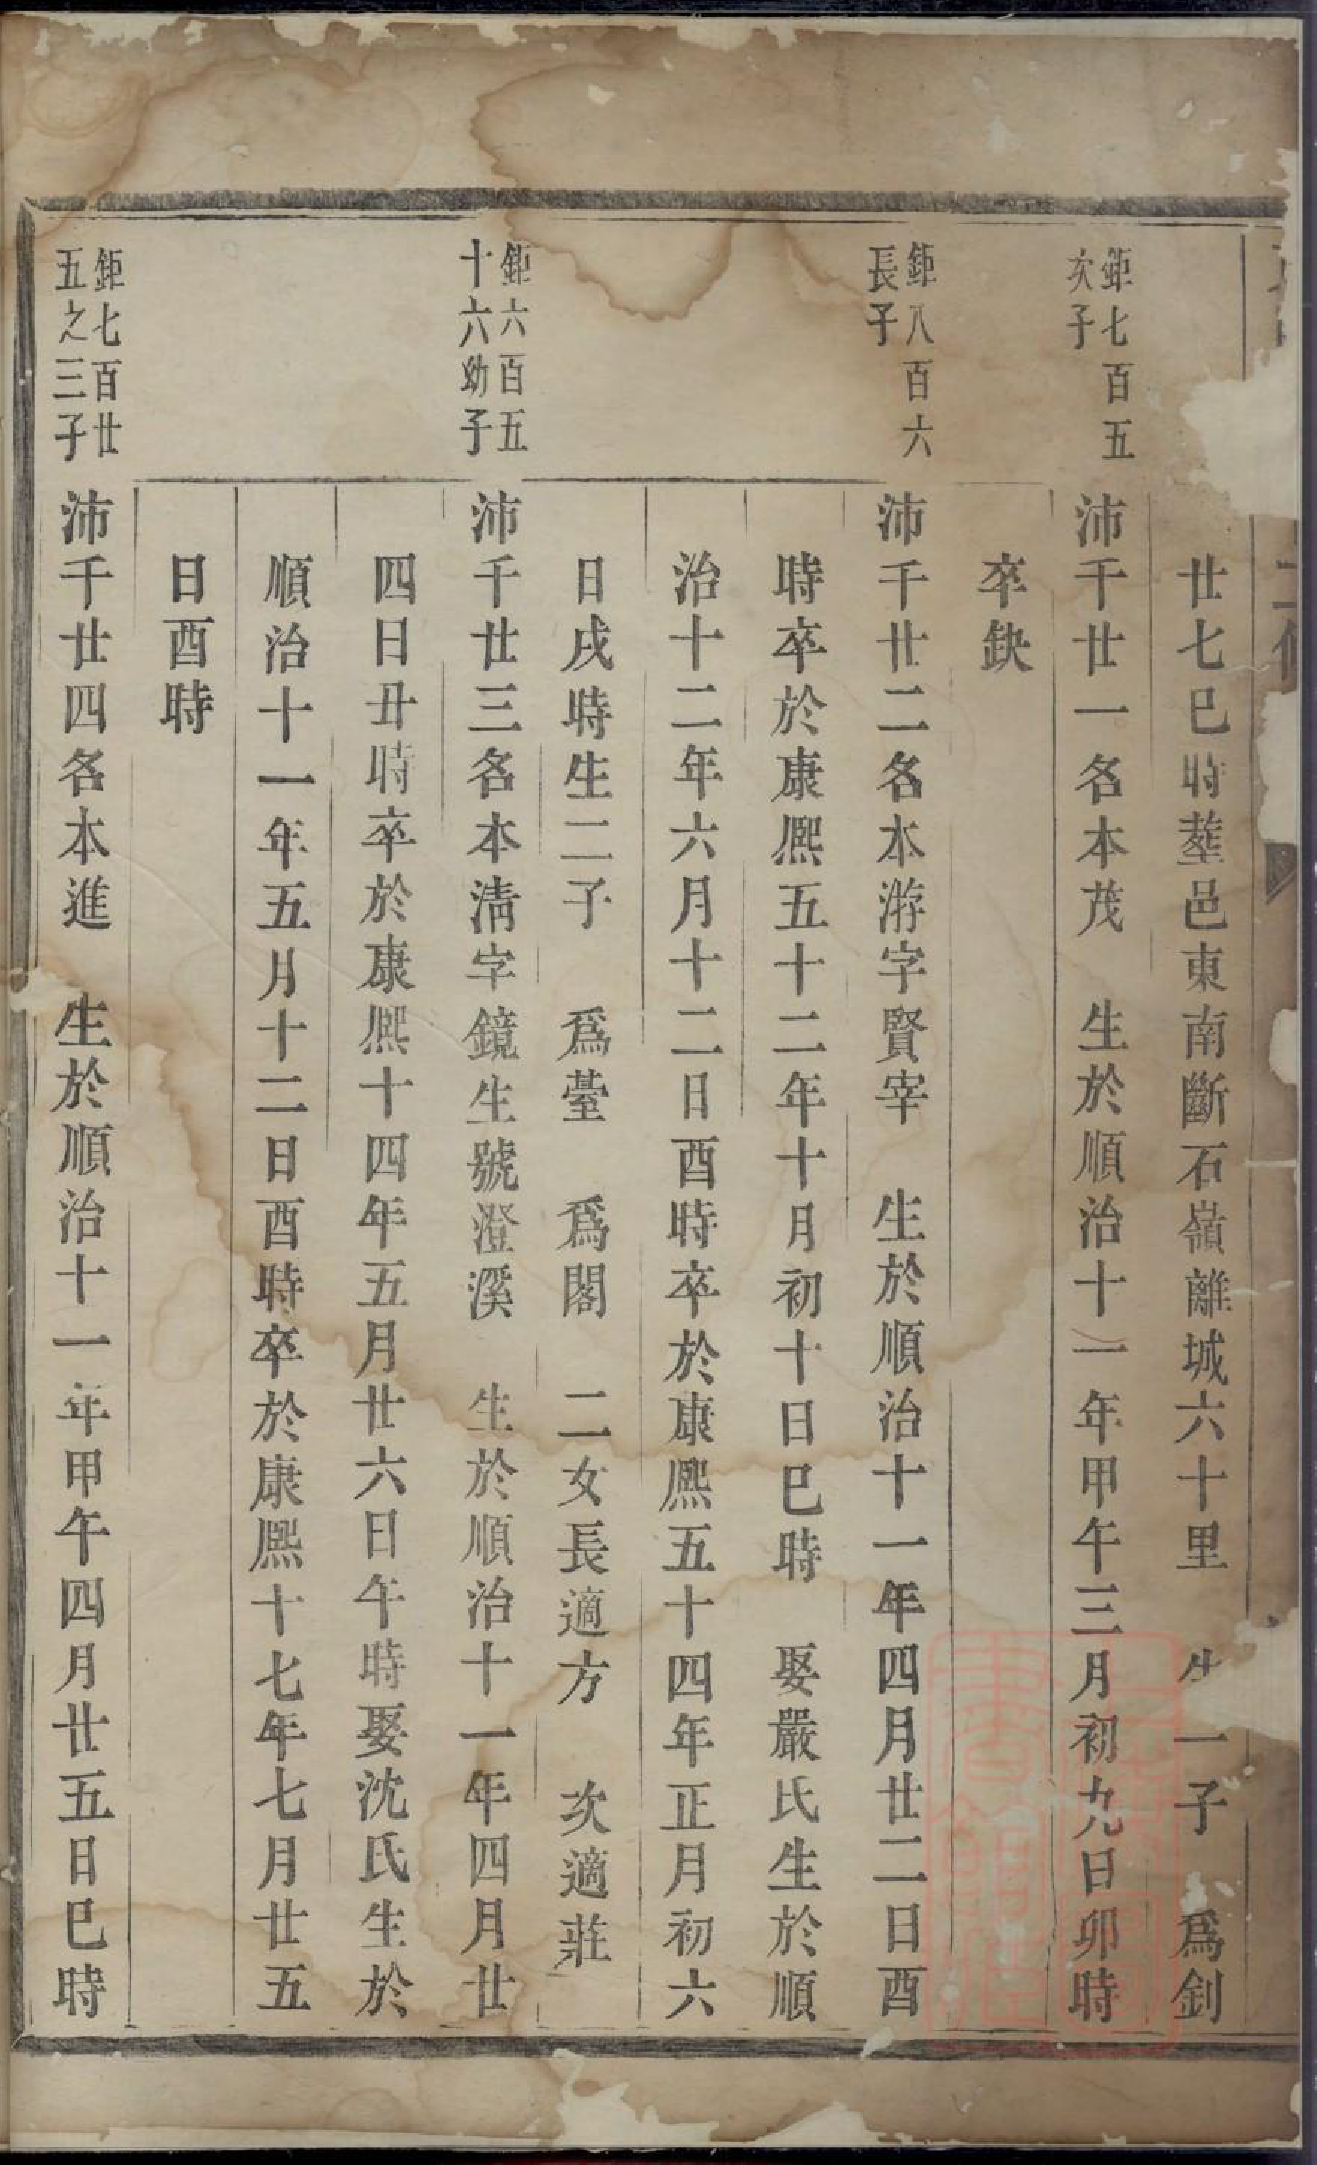 廿七巳時塟邑東南斷石嶺離城六十里 一子 爲釗
鉅七百五
次子
沛千廿一名本茂 生於順治十一年甲午三月初九日卯時
卒缺
鉅八百六
長子
沛千廿二名本游字賢宰 生於順治十一年四月廿二日酉
時卒於康熈五十二年十月初十日巳時 娶嚴氏生於順
治十二年六月十二日酉時卒於康熈五十四年正月初六
日戌時生二子 爲薹 爲閣 二女長適方 次適莊
鉅六百五
十六幼子
沛千廿三名本淸字鏡生號澄溪 生於順治十一年四月廿
四日丑時卒於康熈十四年五月廿六日午時娶沈氏生於
順治十一年五月十二日酉時卒於康熈十七年七月廿五
日酉時
鉅七百廿
五之三子
沛千廿四名本進 生於順治十一年甲午四月廿五日巳時